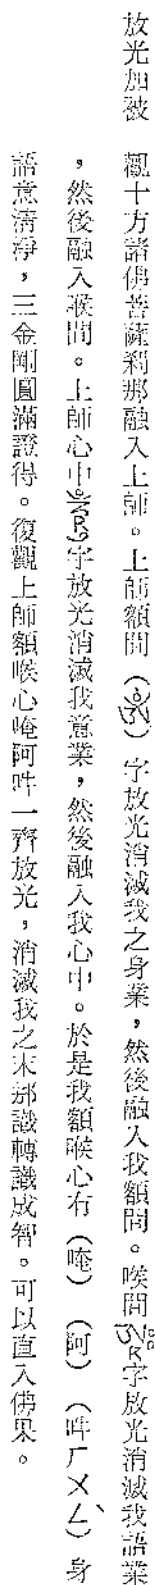 放光加被　觀十方諸佛菩薩剎那融入上師。上師額間（ༀ）字放光消滅我之身業，然後融入我額間。喉間ཨཱཿ字放光消滅我語業
，然後融入喉間。上師心中ཧཱུྃ字放光消滅我意業，然後融入我心中。於是我額喉心有（唵）（阿）（吽ㄏㄨㄥˋ）身
語意清淨，三金剛圓滿證得。復觀上師額喉心唵阿吽一齊放光，消滅我之末那識轉識成智。可以直入佛果。